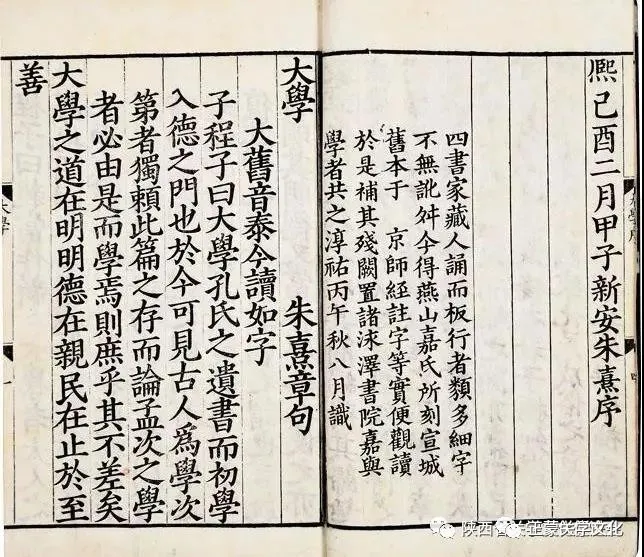 熈己酉二月甲子新安朱熹序
四書家藏人誦而板行者類多細字
不無訛舛今得燕山嘉氏所刻宣城
舊本于 京師經註字等實便觀讀
於是補其殘闕置諸泳澤書院嘉與
學者共之淳祐丙午秋八月識
大學 朱熹章句
大舊音泰今讀如字
子程子曰大學孔氏之遺書而初學
入德之門也於今可見古人爲學次
第者獨賴此篇之存而論孟次之學
者必由是而學焉則庶乎其不差矣
大學之道在明明德在親民在止於至
善
大學
一
陕西